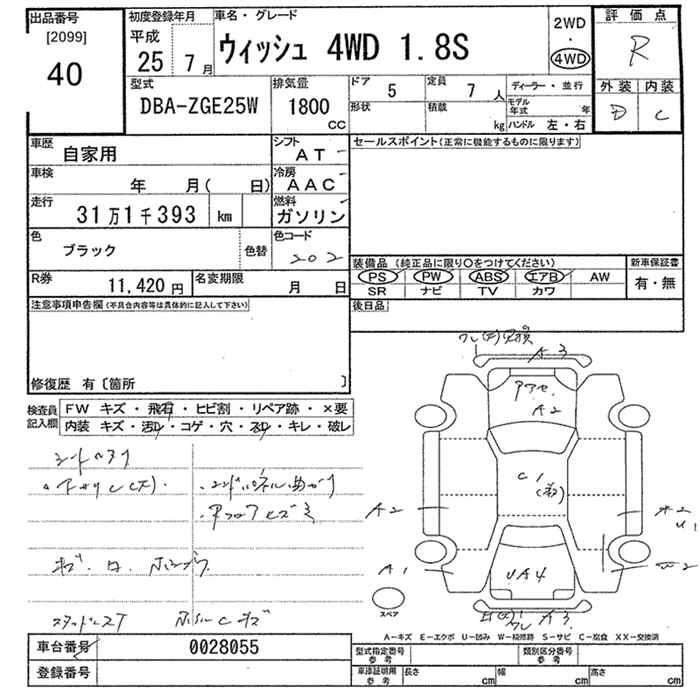 出品番号
[2099]
40
初度登録年月
平成
25年 7月
車名・グレード
ウィッシュ 4WD 1.8S
2WD
・
4WD
評価点
R
外装 内装
D C
型式
DBA-ZGE25W
排気量
1800
CC
ドア 5
定員 7 人
形状
積載 kg
ディーラー・並行
モデル年式 年
ハンドル 左・右
車歴
自家用
シフト
AT
車検
年 月( 日)
冷房
AAC
走行
31万1千393 km
燃料
ガソリン
色
ブラック
色替
色コード
202
R券
11,420 円
名変期限
月 日
セールスポイント(正常に機能するものに限ります)
装備品 (純正品に限り○をつけてください)
PS PW ABS エアB AW
SR ナビ TV カワ
新車保証書
有・無
後日品
注意事項申告欄(不具合内容等は具体的に記入して下さい)
修復歴 有〔箇所 〕
検査員記入欄
FW キズ・飛石・ヒビ割・リペア跡・×要
内装 キズ・汚レ・コゲ・穴・スレ・キレ・破レ
A3
A2
C1
A2
A1
UA4
A3
スペア
A-キズ E-エクボ U-凹み W-補修跡 S-サビ C-腐食 XX-交換済
車台番号
0028055
登録番号
型式指定番号
参考
類別区分番号
参考
車渡証明用
参考
長さ cm
幅 cm
高さ cm